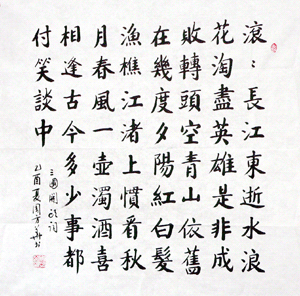 滾〻長江東逝水浪
花淘盡英雄是非成
敗轉頭空青山依舊
在幾度夕陽紅白髮
漁樵江渚上慣看秋
月春風一壺濁酒喜
相逢古今多少事都
付笑談中
三國開詞
乙酉夏周方書